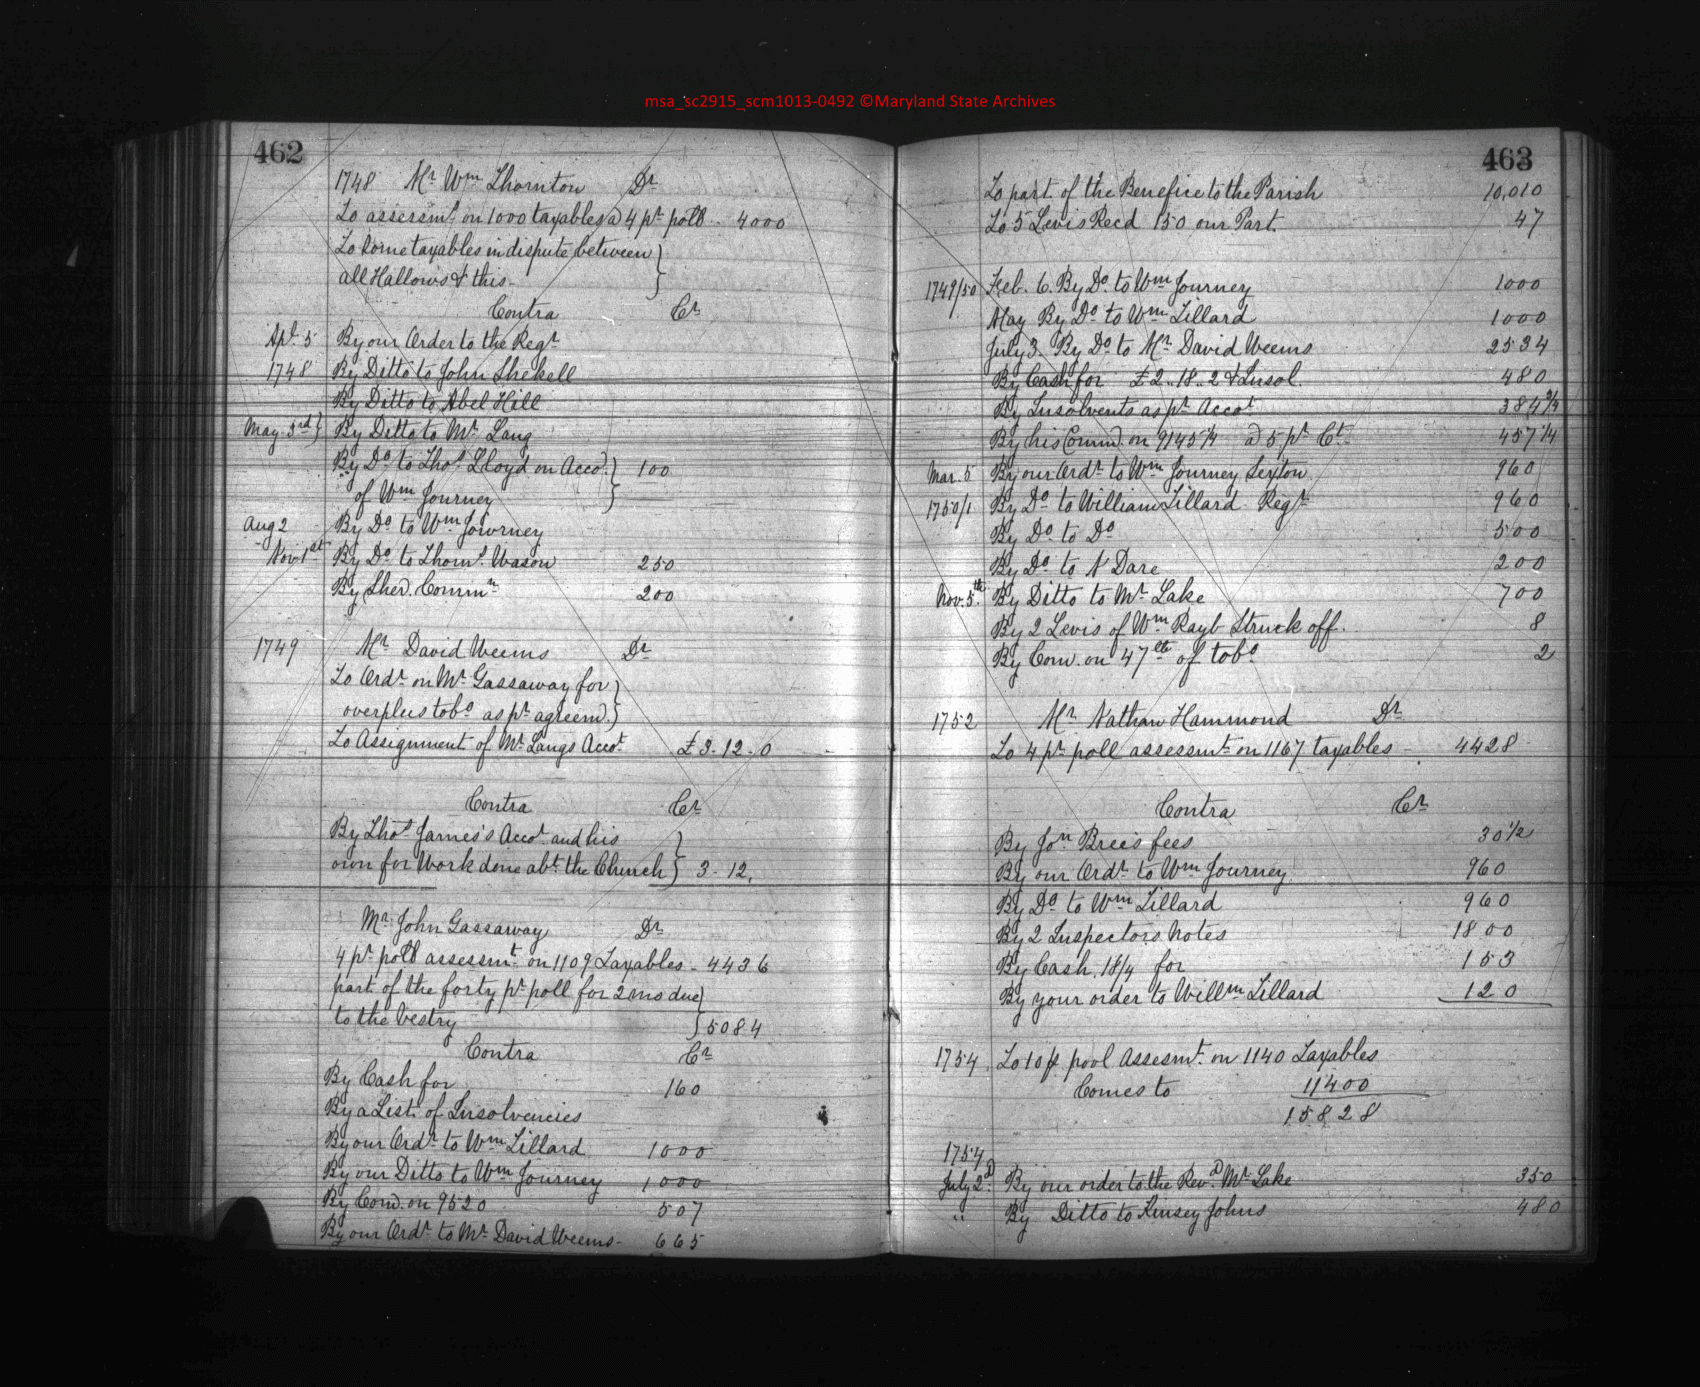 msa_sc2915_scm1013-0492 ©Maryland State Archives
462
1748 Mr Wm Thornton Dr
To assessmt on 1000 taxables a 4 pr poll - 4000
To Some taxables in dispute between
all Hallows & this -
Contra Cr
Apl 5 By our Order to the Regr
1748 By Ditto to John Shekell
By Ditto to Abel Hill
May 3rd } By Ditto to Mr Lang
By Do to Thos Lloyd on Accot } 100
of Wm Journey
Aug 2 By Do to Wm Journey
Nov 1st By Do to Thoms Wason 250
By Sher. Commn 200
1749 Mr David Weems Dr
To Ordr on Mr Gassaway for
overplus tobo as pr agreemt }
To Assignment of Mr Langs Accot £3-12-0
Contra Cr
By Thos James's Accot and his
own for Work done abt the Church } 3-12.
Mr John Gassaway Dr
4 pr poll assessmt on 1109 Taxables - 4436
part of the forty pr poll for 2 mo due
to the Vestry } 5084
Contra Cr
By Cash for 160
By a List of Insolvencies
By our Ordr to Wm Lillard 1000
By our Ditto to Wm Journey 1000
By Com. on 9520 507
By our Ordr to Mr David Weems - 665
463
To part of the Benefice to the Parish 10,010
To 5 Levis Recd 150 our Part 47
1749/50 Feb. 6. By Do to Wm Journey 1000
May By Do to Wm Lillard 1000
July 3. By Do to Mr David Weems 2534
By Cash for £2..18..2 & Insol. 480
By Insolvents as pr Accot 384 3/4
By his Comm. on 9145 1/4 a 5 pr Ct 457 1/4
Mar. 5 By our Ordr to Wm Journey Sexton 960
1750/1 By Do to William Lillard Regr 960
By Do to Do 500
By Do to N Dare 200
Nov. 5th By Ditto to Mr Lake 700
By 2 Levis of Wm Rayb Struck off. 8
By Com. on 47lb of tobo 2
1752 Mr Nathan Hammond Dr
To 4 pr poll assessmt on 1167 taxables - 4428
Contra Cr
By Jon Brees fees 30 1/2
By our Ordr to Wm Journey 960
By Do to Wm Lillard 960
By 2 Inspectors Notes 1800
By Cash 18/4 for 153
By your order to Willm Lillard 120
1754 To 10 p pool Assesmt on 1140 Taxables
Comes to 11400
15828
1754
July 2d. By our order to the Revd Mr Lake 350
" By Ditto to Kinsey Johns 480